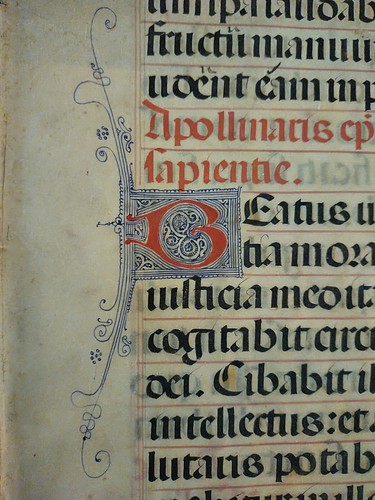 fructū manuū
udēnt eam in p
Apollinaris ep̄i
sapientie.
BEatus u
tia mora
iusticia medita
cogitabit circ
dei. Cibabit il
intellectus: et a
lutaris potab